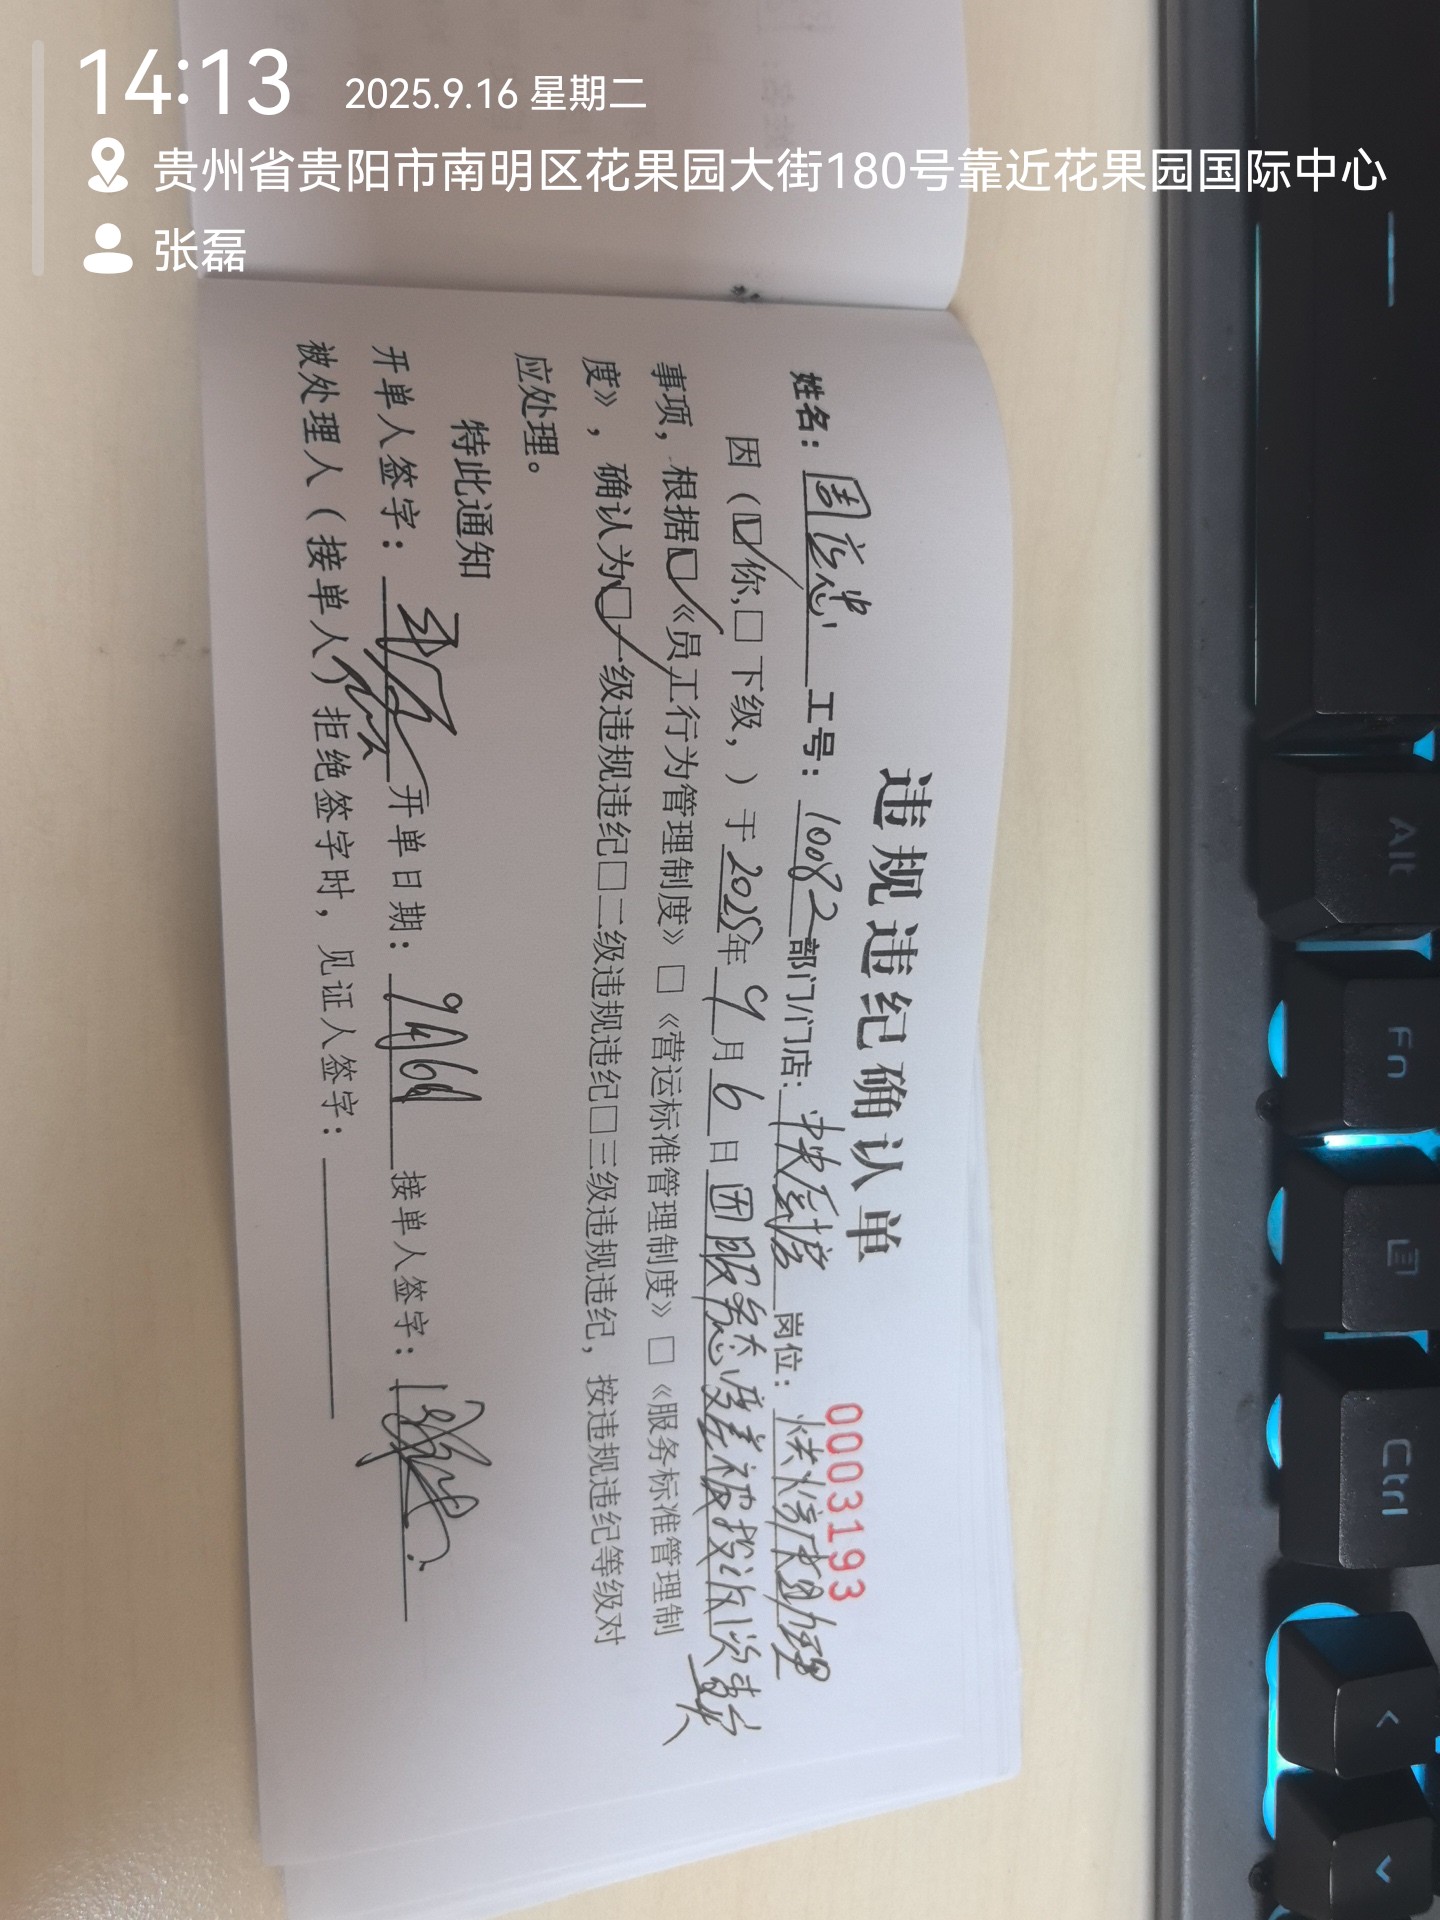 14:13 2025.9.16 星期二
贵州省贵阳市南明区花果园大街180号靠近花果园国际中心
张磊
违规违纪确认单
0003193
姓名：周 忠 工号：10082 部门/门店： 岗位： 烘焙 助理
因（☑你,□下级，）于2025年9月6日因服务态度差被投诉1次
事项，根据☑《员工行为管理制度》□《营运标准管理制度》□《服务标准管理制
度》，确认为☑一级违规违纪□二级违规违纪□三级违规违纪，按违规违纪等级对
应处理。
特此通知
开单人签字： 开单日期： 接单人签字：
被处理人（接单人）拒绝签字时，见证人签字：
Alt
Fn
Ctrl